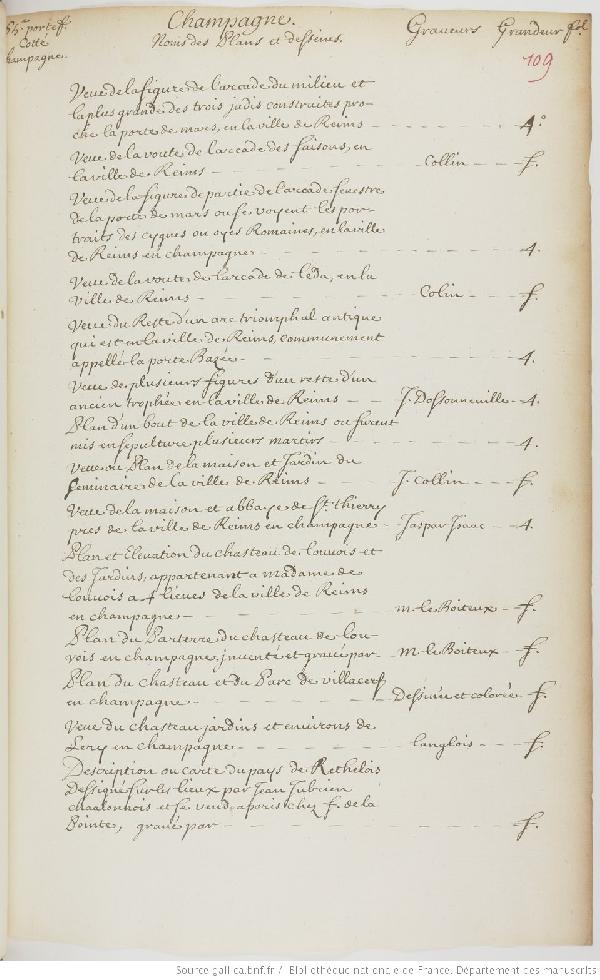 Champagne.
Noms des Plans et desseins.
Graveurs Grandeur fol.
portef.
Cotté
Champagne.
109
Veue de la figure de l'arcade du milieu et
la plus grande des trois jadis construites pro-
che la porte de mars, en la ville de Reims - 4.º
Veue de la voute de l'arcade des saisons, en
la ville de Reims - Collin - f.
Veue de la figure de partie de l'arcade senestre
de la porte de mars ou se voyent les por-
traits des cygnes ou oyes Romaines, en la ville
de Reims en champagne - 4.
Veue de la voute de l'arcade de Léda, en la
ville de Reims - Colin - f.
Veue du Reste d'un arc triomphal antique
qui est en la ville de Reims, communement
appellé la porte Bazée - 4.
Veue de plusieurs figures d'un reste d'un
ancien trophée en la ville de Reims - J. Dossonneville - 4.
Plan d'un bout de la ville de Reims ou furent
mis en sepulture plusieurs martirs - 4.
Veue ou Plan de la maison et Jardin du
Seminaire de la ville de Reims - J. Collin - f.
Veue de la maison et abbaye de St. thierry
pres de la ville de Reims en champagne - Jaspar Isaac - 4.
Plan et Elevation du chasteau de louvois et
des Jardins, appartenant a madame de
louvois a 4 lieues de la ville de Reims
en champagne - m. le Boiteux - f.
Plan du Parterre du chasteau de lou-
vois en champagne, inventé et gravé par - m. le Boiteux - f.
Plan du chasteau et du Parc de villacerf
en champagne - Dessiné et colorée - f.
Veue du chasteau jardins et environs de
Lery en champagne - langlois - f.
Description ou carte du pays de Rethelois
Dessigné sur les lieux par Jean Jubrien
chaalonnois et se vend a paris chez f. de la
Pointe, gravé par - f.
Source gallica.bnf.fr / Bibliothèque nationale de France. Département des manuscrits